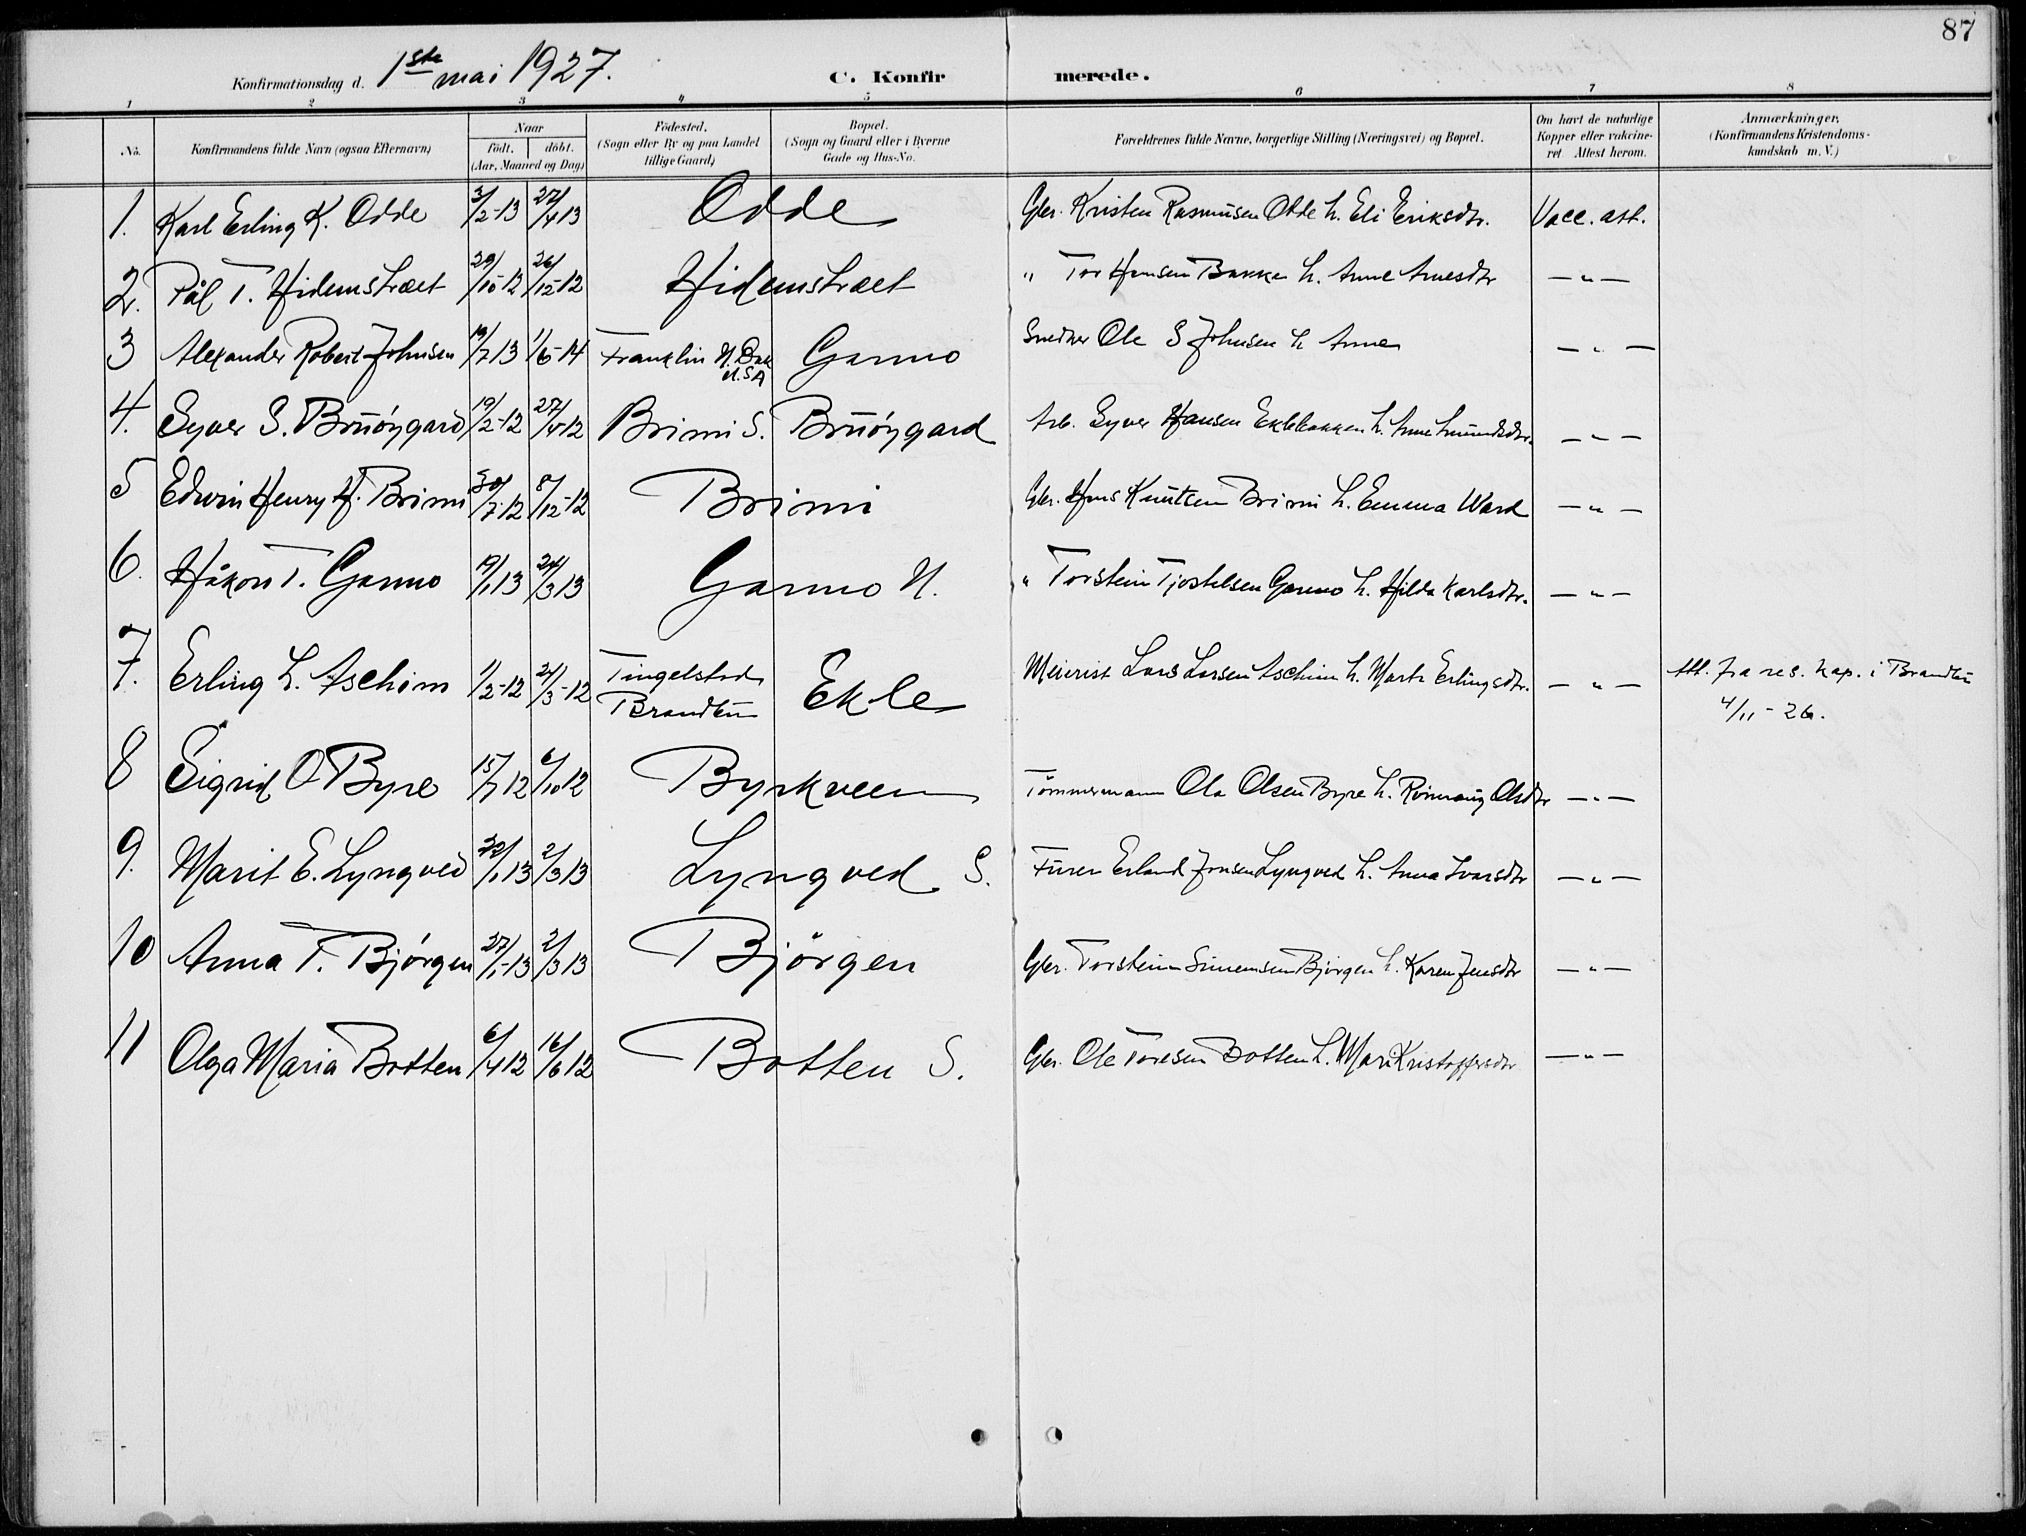 87
Konfirmationsdag d. 1ste mai 1927. C. Konfir merede.
1 2 3 4 5 6 7 8
No. Konfirmandens fulde Navn (ogsaa Efternavn) Naar født. døbt. (Aar, Maaned og Dag) Fødested. (Sogn eller By og paa Landet tillige Gaard) Bopæl. (Sogn og Gaard eller i Byerne Gade og Hus-No. Forældrenes fulde Navne, borgerlige Stilling (Næringsvei) og Bopæl. Om havt de naturlige Kopper eller vakcineret Attest herom. Anmærkninger. (Konfirmandens Kristendomskundskab m. V.)
1. Karl Erling K. Odde 3/2-13 27/4 13 Odde Gbr. Kristen Rasmusen Odde h. Eli Eriksdtr. Vacc. att.
2. Pål T. Hidemstræet 29/10-12 26/12-12 Hidemstræet " Tor Hansen Bakken h. Anne Arnesdtr — " —
3 Alexander Robert Johnsen 19/7 13 1/6-14 Franklin N. Dak U.S.A Garmo Snedker Ole S Johnsen h Anne — " —
4. Syver S. Bruøygard 19/2-12 27/4 12 Brimi S. Bruøygard Arb. Syver Hansen Eklebakken h. Anne Amundsdtr. — " —
5 Edwin Henry H. Brimi 30/7-12 8/12-12 Brimi Gbr. Hans Knutsen Brimi h. Emma Ward — " —
6. Håkon T. Garmo 19/1 13 24/3 13 Garmo N. " Torstein Tjostelsen Garmo h. Hilda Karlsdtr. — " —
7. Erling L. Aschim 1/2-12 24/3-12 Tingelstad Brandbu Ekle Meierist Lars Larsen Aschim h. Marte Erlingsdtr. — " — Att. fra res. kap. i Brandbu
4/11 - 26.
8 Sigrid O Byre 15/7 12 6/10 12 Byrkveen Tømmermann Ola Olsen Byre h. Rønnaug Olsdtr — " —
9. Marit E. Lyngved 22/1 13 2/3 13 Lyngved S. Furer Erland Jonsen Lyngved h. Anna Ivarsdtr — " —
10 Anna T. Bjørgen 27/1-13 2/3 13 Bjørgen Gbr. Torstein Simensen Bjørgen h. Karen Jensdtr — " —
11 Olga Maria Botten 6/4 12 16/6 12 Botten S. Gbr. Ole Toresen Botten h. Mari Kristoffersdtr — " —